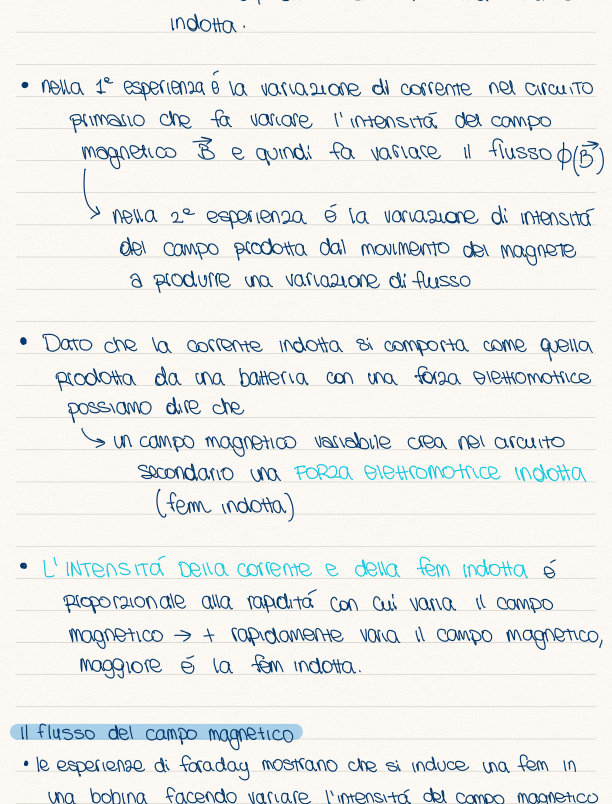 indotta.
• nella 1ª esperienza é la variazione di corrente nel circuito
primario che fa variare l'intensitá del campo
magnetico B⃗ e quindi fa variare il flusso ϕ(B⃗)
↳ nella 2ª esperienza é la variazione di intensitá
del campo prodotta dal movimento del magnete
a produrre una variazione di flusso
• Dato che la corrente indotta si comporta come quella
prodotta da una batteria con una forza elettromotrice
possiamo dire che
↳ un campo magnetico variabile crea nel circuito
secondario una FORZA elettromotrice indotta
(fem indotta)
• L'INTENSITÁ Della corrente e della fem indotta é
proporzionale alla rapiditá con cui varia il campo
magnetico → + rapidamente varia il campo magnetico,
maggiore é la fem indotta.
Il flusso del campo magnetico
• le esperienze di faraday mostrano che si induce una fem in
una bobina facendo variare l'intensitá del campo magnetico